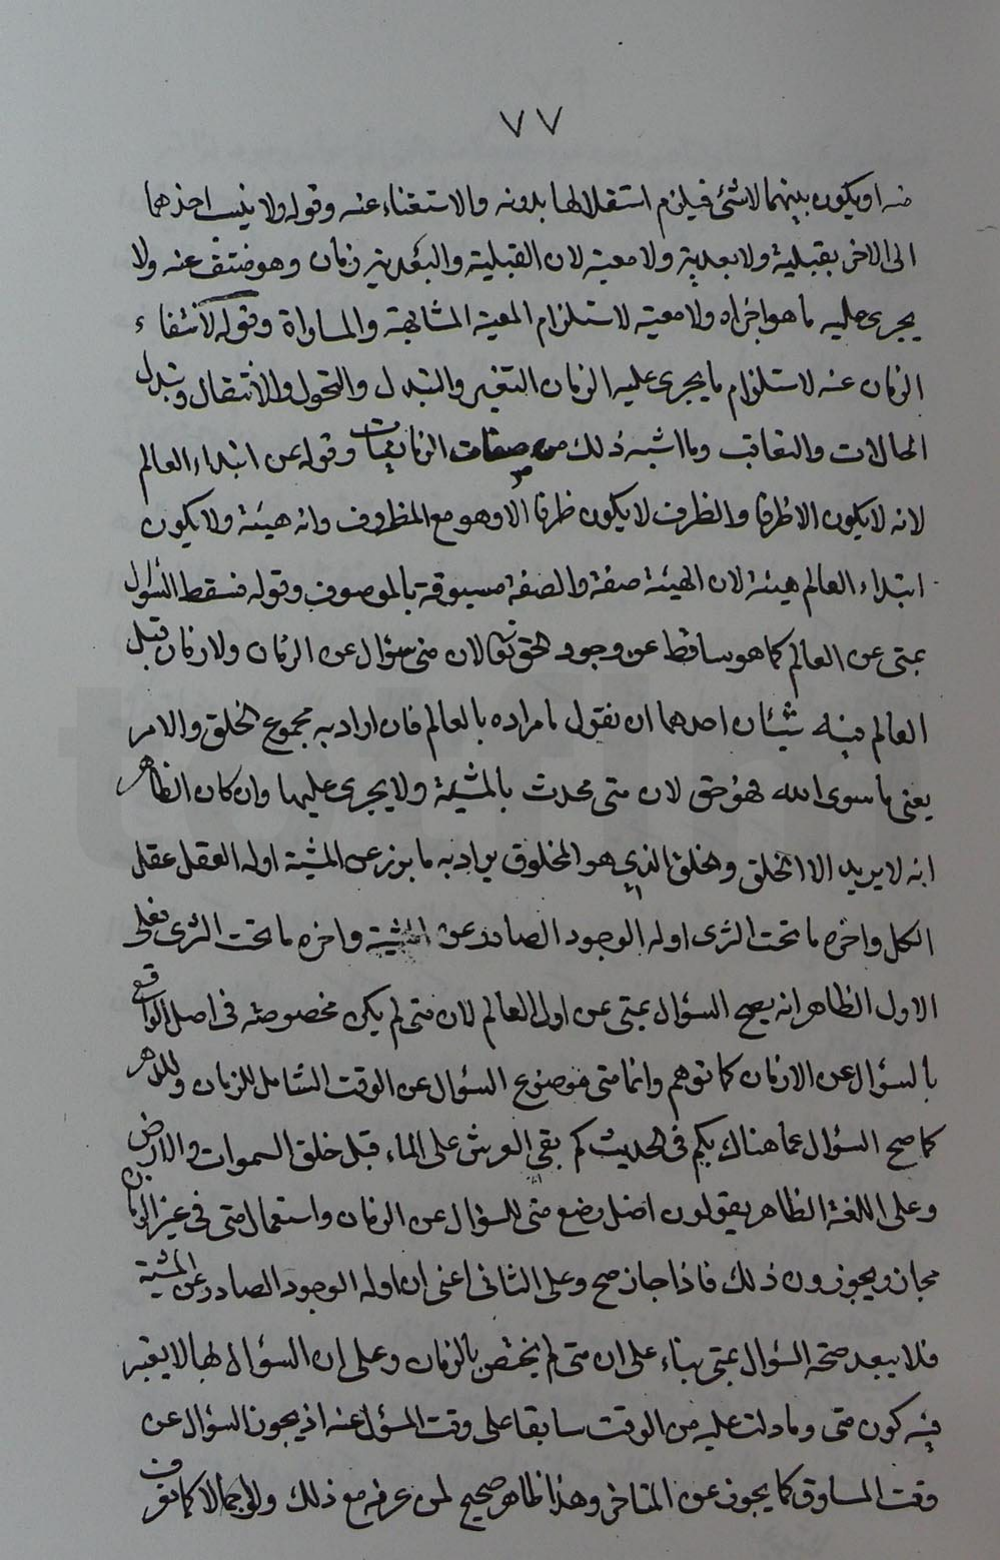 ٧٧
منه او يكون بينهما لا شئ فيلزم استقلالها بدونه والاستغناء عنه وقوله ولا ينسب احدهما
الى الاخر بقبلية ولا بعدية ولا معية لان القبلية والبعدية زمان وهو منتف عنه ولا
يجرى عليه ما هو اجراه ولا معية لاستلزام المعية المشابهة والمساواة وقوله لانتفاء
الزمان عنه لاستلزام ما يجرى عليه الزمان التغير والتبدل والتحول والانتقال وتبدل
الحالات والتعاقب وما اشبه ذلك من صفات الزمانيات وقوله عن ابتداء العالم
لانه لا يكون الا ظرفا والظرف لا يكون ظرفا الا وهو مع المظروف وانه هيئة ولا يكون
ابتداء العالم هيئة لان الهيئة صفة والصفة مسبوقة بالموصوف وقوله فسقط السؤال
بمتى عن العالم كما هو ساقط عن وجود الحق تعالى لان متى سؤال عن الزمان ولا زمان قبل
العالم فيه شيئان احدهما ان نقول ما مراده بالعالم فان اراد به مجموع الخلق والامر
يعنى ما سوى الله فهو حق لان متى محدث بالمشية ولا يجرى عليها وان كان الظاهر
انه لا يريد الا الخلق والخلق الذي هو المخلوق يراد به ما برز عن المشية اوله العقل عقل
الكل واخره ما تحت الثرى اوله الوجود الصادر عن المشية واخره ما تحت الثرى فعلى
الاول الظاهر انه يصح السؤال بمتى عن اول العالم لان متى لم يكن مخصوصه فى اصل الواقع
بالسؤال عن الازمان كما توهم وانما متى موضوع السؤال عن الوقت الشامل للزمان وللدهر
كما صح السؤال عما هناك بكم فى الحديث كم بقى العرش على الماء قبل خلق السموات والارض
وعلى اللغة الظاهر يقولون اصل وضع متى للسؤال عن الزمان واستعمال متى فى غير الزمان
مجاز ويجوزون ذلك فاذا جاز صح وعلى الثانى اعنى ان اوله الوجود الصادر عن المشية
فلا يبعد صحة السؤال بمتى بناء على ان متى لم يختص بالزمان وعلى ان السؤال بها لا يعتبر
فيه كون متى وما دلت عليه من الوقت سابقا على وقت المسؤل عنه اذ يجوز السؤال عن
وقت المساوق كما يجوز عن المتاخر وهذا ظاهر صحيح لمن عرفه مع ذلك ولو اجمالا كما